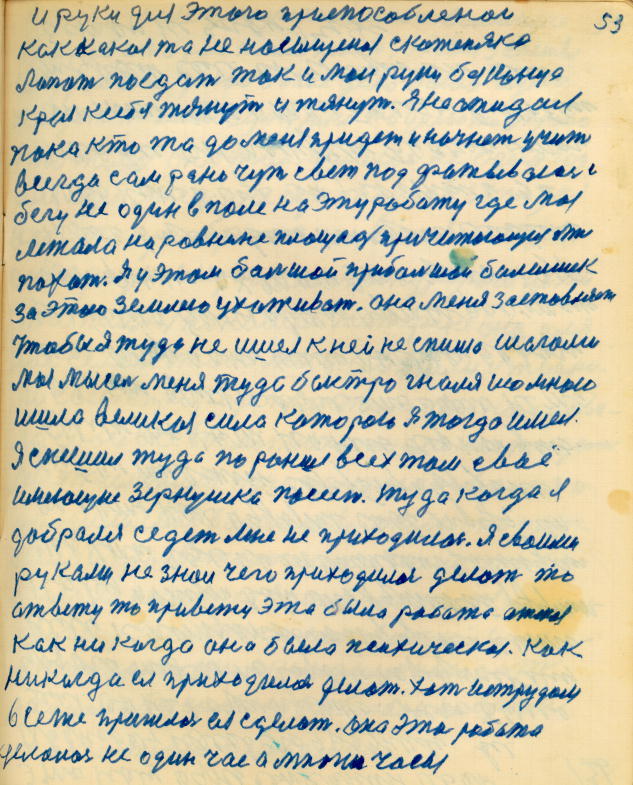 53
и руки для этого приспособленои
как какая та не насыщеная скатеняка
лапат поедат так и маи руки без конца
края к себя тянут и тянут. Я не ожидал
пока кто та до меня придет и начнет учит
всегда сам рано чут свет под
бегу не один в поле на эту работу где моя
лежала на ровнине площад причитающия мне
пахат. Я у этом балшой прибалшой
за этою землею ухаживат. она меня заставляет
чтобы я туда не шел к ней не спиша шагами
моя мысел меня туда быстро гналя со мною
шила великая сила каторою я тогда имел.
Я спешил туда по раньше всех там своё
имеющие зернушка посеят. туда когда я
добрался седет мне не приходилос. Я своими
руками не зная чего приходилос делат то
ответу то привету эта была работа
как ни когда она была психическая. Как
никогда ея приходилос делат. хот и с трудом
все же пришлос ея сделат. она эта работа
делалас не один час а многи часы